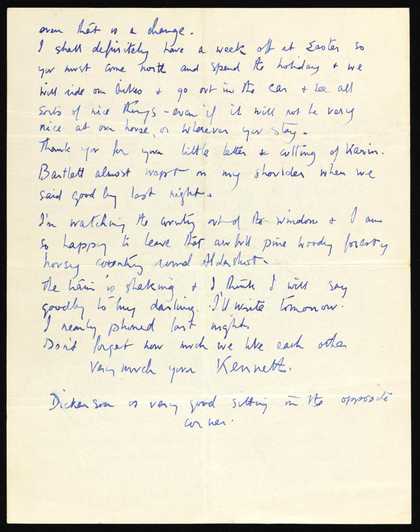 even that is a change.
I shall definitely have a week off at Easter so
you must come north and spend the holiday & we
will ride our bikes & go out in the car & see all
sorts of nice things - even if it will not be very
nice at our house, or wherever you stay.
Thank you for your little letter & cutting of Karin.
Bartlett almost wept on my shoulder when we
said good by last night.
I'm watching the country out of the window & I am
so happy to leave that awful pine woody foresty
horsey country round Aldershot.
The train is shaking & I think I will say
goodby to my darling. I'll write tomorrow.
I nearly phoned last night.
Don't forget how much we like each other
Very much your Kenneth.
Dickenson is very good sitting in the opposite
corner.